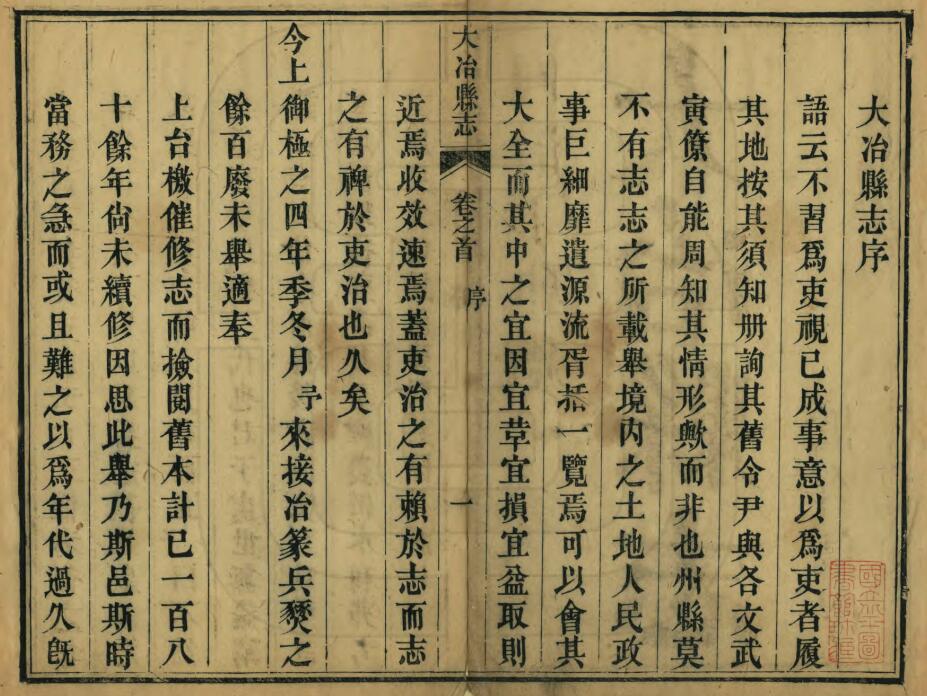 大冶縣志序
語云不習爲吏視已成事意以爲吏者履
其地按其須知册詢其舊令尹與各文武
寅僚自能周知其情形歟而非也州縣莫
不有志志之所載舉境内之土地人民政
事巨細靡遺源流胥括一覽焉可以會其
大全而其中之宜因宜革宜損宜益取則
大冶縣志
卷之首
序
一
近焉收效速焉蓋吏治之有賴於志而志
之有裨於吏治也久矣
今上御極之四年季冬月予來接冶篆兵燹之
餘百廢未舉適奉
上台檄催修志而撿閱舊本計已一百八
十餘年尚未續修因思此舉乃斯邑斯時
當務之急而或且難之以爲年代過久旣